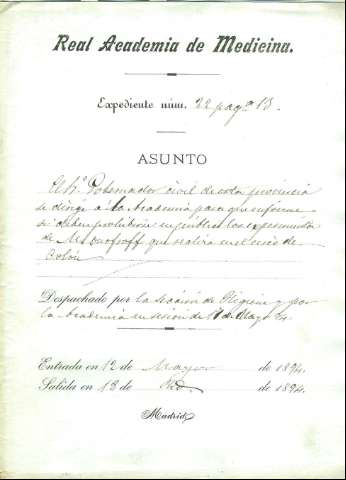 Real Academia de Medicina.
Expediente núm. 22 pagª 13.
ASUNTO
El Sr. Gobernador civil de esta provincia
se dirige á la Academia para que informe
si deben prohibirse en público los experimentos
de Mr. que realiza en el circo de
Colón
Despachado por la Sección de Higiene y por
la Academia en sesión de 11 de Mayo
Entrada en 12 de Mayo de 1894.
Salida en 13 de de 1894.
Madrid